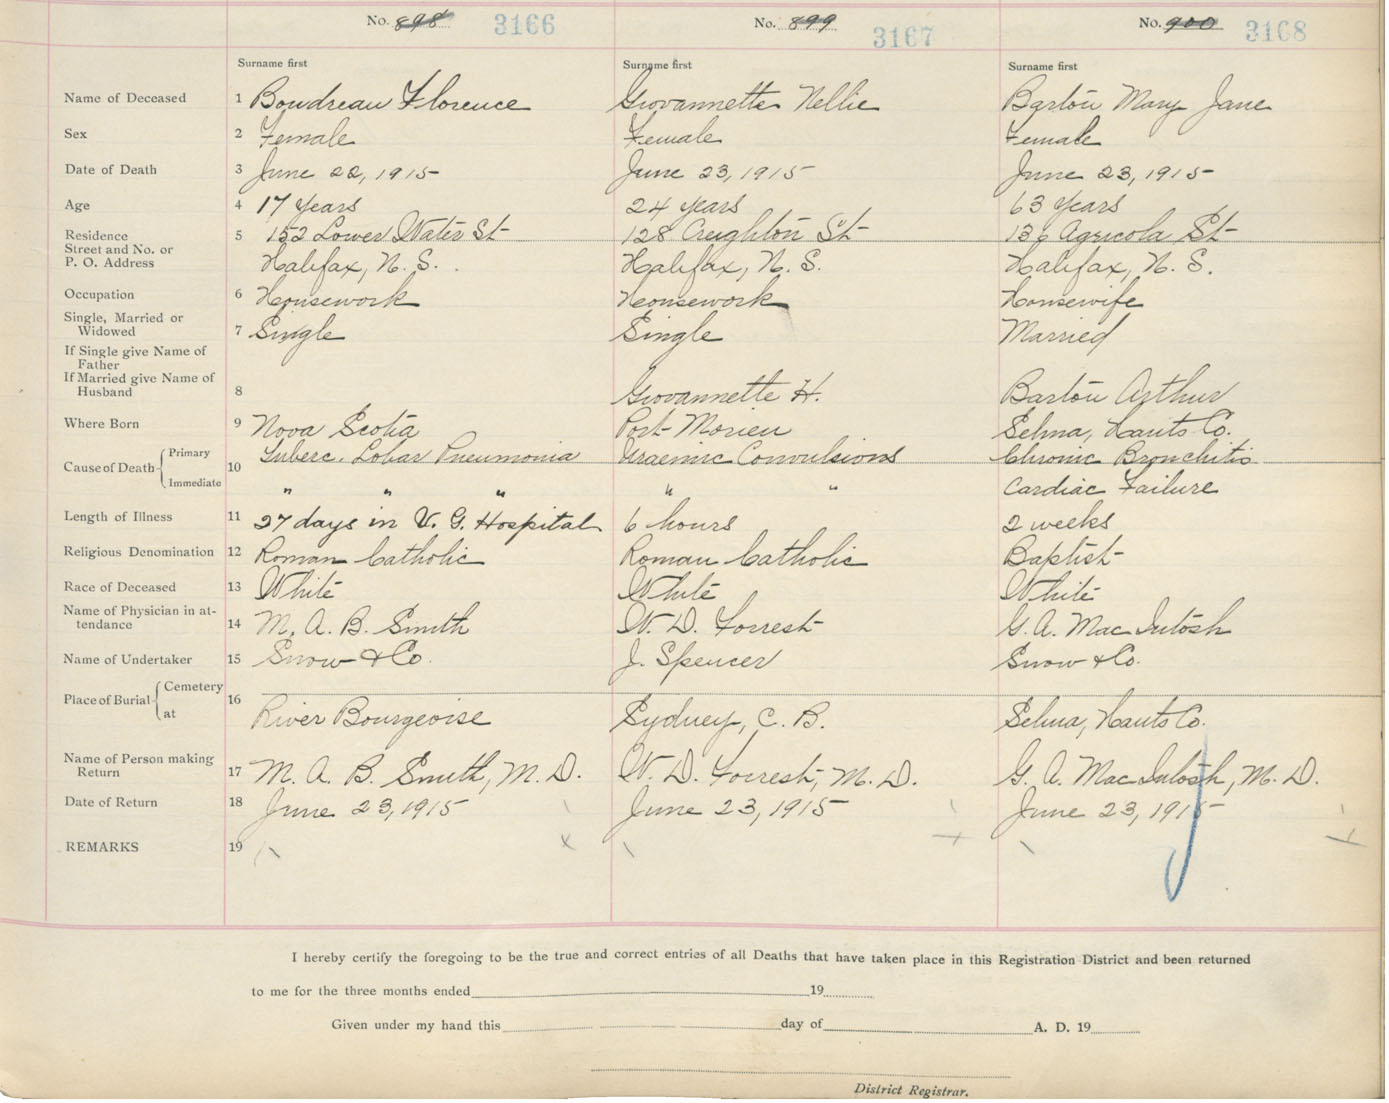 No. 898 3166 No. 899 3167 No. 900 3168
Surname first Surname first Surname first
Name of Deceased 1 Boudreau Florence Giovannette Nellie Barton Mary Jane
Sex 2 Female Female Female
Date of Death 3 June 22, 1915 June 23, 1915 June 23, 1915
Age 4 17 Years 24 years 63 Years
Residence 5 152 Lower Water St 128 Creighton St 136 Agricola St
Street and No. or
P. O. Address Halifax, N. S. Halifax, N. S. Halifax, N. S.
Occupation 6 Housework Housework Housewife
Single, Married or
Widowed 7 Single Single Married
If Single give Name of
Father
If Married give Name of
Husband 8 Giovannette H. Barton Arthur
Where Born 9 Nova Scotia Port Morien Selma, Hants Co.
Cause of Death Primary 10 Tuberc. Lobar Pneumonia Uraemic Convulsions Chronic Bronchitis
Immediate " " " " " Cardiac Failure
Length of Illness 11 27 days in V. G. Hospital 6 hours 2 weeks
Religious Denomination 12 Roman Catholic Roman Catholic Baptist
Race of Deceased 13 White White White
Name of Physician in at-
tendance 14 M. A. B. Smith W. D. Forrest G. A. MacIntosh
Name of Undertaker 15 Snow & Co. J. Spencer Snow & Co.
Place of Burial Cemetery 16
at River Bourgeoise Sydney, C. B. Selma, Hants Co.
Name of Person making
Return 17 M. A. B. Smith, M. D. W. D. Forrest, M. D. G. A. MacIntosh, M. D.
Date of Return 18 June 23, 1915 June 23, 1915 June 23, 1915
REMARKS 19
I hereby certify the foregoing to be the true and correct entries of all Deaths that have taken place in this Registration District and been returned
to me for the three months ended 19
Given under my hand this day of A. D. 19
District Registrar.